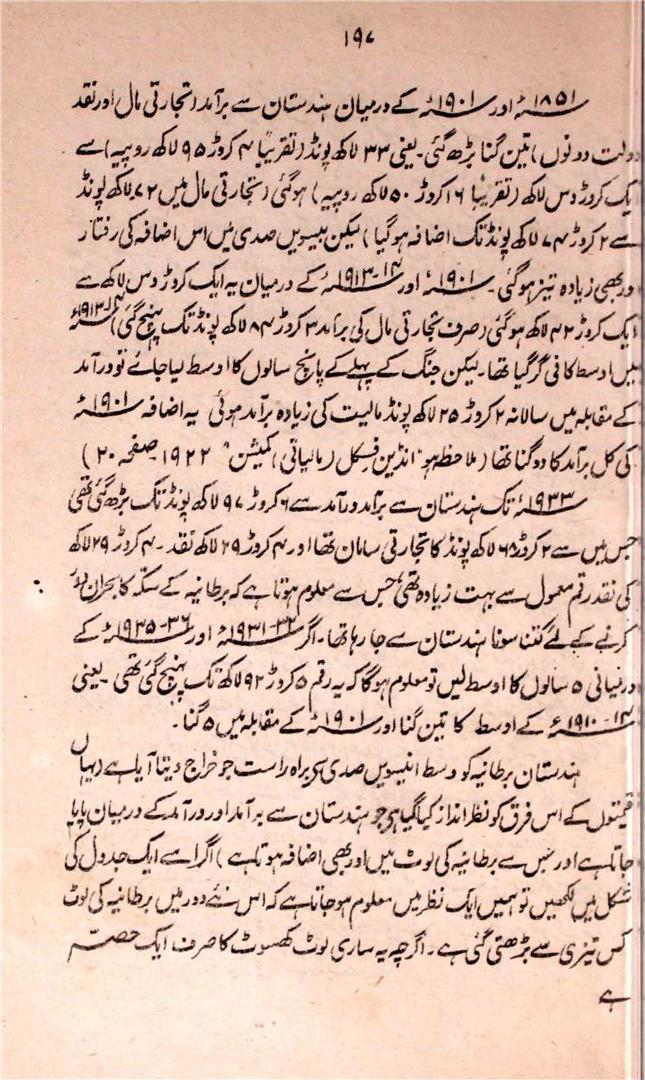 ۱۹۷
۱۸۵۱ء اور ۱۹۰۱ء کے درمیان ہندستان سے برآمد (تجارتی مال اور نقد
دولت دونوں) تین گنا بڑھ گئی۔ یعنی ۳۳ لاکھ پونڈ (تقریباً ۴ کروڑ ۹۵ لاکھ روپیہ) سے
یک کروڑ دس لاکھ (تقریباً ۱۶ کروڑ ۵۰ لاکھ روپیہ) ہوگئی (تجارتی مال میں ۷۲ لاکھ پونڈ
سے ۲ کروڑ ۷۴ لاکھ پونڈ تک اضافہ ہوگیا) لیکن بیسویں صدی میں اس اضافہ کی رفتار
ور بھی زیادہ تیز ہوگئی۔ ۱۹۰۱ء اور ۱۴-۱۹۱۳ء کے درمیان یہ ایک کروڑ دس لاکھ سے
ایک کروڑ ۴۲ لاکھ ہوگئی (صرف تجارتی مال کی برآمد ۳ کروڑ ۸۴ لاکھ پونڈ تک پہنچ گئی) ۱۴-۱۹۱۳ء
میں اوسط کافی گر گیا تھا۔ لیکن جنگ کے پہلے کے پانچ سالوں کا اوسط لیا جائے تو درآمد
کے مقابلہ میں سالانہ ۲ کروڑ ۲۵ لاکھ پونڈ مالیت کی زیادہ برآمد ہوئی یہ اضافہ ۱۹۰۱ء
کی کل برآمد کا دوگنا تھا (ملاحظہ ہو "انڈین فسکل (مالیاتی) کمیشن" ۱۹۲۲ - صفحہ ۲۰)
۱۹۳۳ء تک ہندستان سے برآمد ورآمد سے ۶ کروڑ ۹۷ لاکھ پونڈ تک بڑھ گئی تھی
جس میں سے ۲ کروڑ ۶۸ لاکھ پونڈ کا تجارتی سامان تھا اور ۴ کروڑ ۲۹ لاکھ نقد۔ ۴ کروڑ ۲۹ لاکھ
کی نقد رقم معمول سے بہت زیادہ تھی، جس سے معلوم ہوتا ہے کہ برطانیہ کے سکہ کا بحران
کرنے کے لئے کتنا سونا ہندستان سے جا رہا تھا۔ اگر ۳۲-۱۹۳۱ء اور ۳۶-۱۹۳۵ء کے
درنیانی ۵ سالوں کا اوسط لیں تو معلوم ہوگا کہ یہ رقم ۵ کروڑ ۹۲ لاکھ تک پہنچ گئی تھی۔ یعنی
۱۴-۱۹۱۰ء کے اوسط کا تین گنا اور ۱۹۰۱ء کے مقابلہ میں ۵ گنا۔
ہندستان برطانیہ کو وسط انیسویں صدی ہی براہ راست جو خراج دیتا آیا ہے (یہاں
قیمتوں کے اس فرق کو نظر انداز کیا گیا ہی جو ہندستان سے برآمد اور ورآمد کے درمیان پایا
جاتا ہے اور جس سے برطانیہ کی لوٹ میں اور بھی اضافہ ہوتا ہے) اگر اسے ایک جدول کی
شکل میں لکھیں تو ہمیں ایک نظر میں معلوم ہو جاتا ہے کہ اس نئے دور میں برطانیہ کی لوٹ
کس تیزی سے بڑھتی گئی ہے۔ اگرچہ یہ ساری لوٹ کھسوٹ کا صرف ایک حصہ
ہے